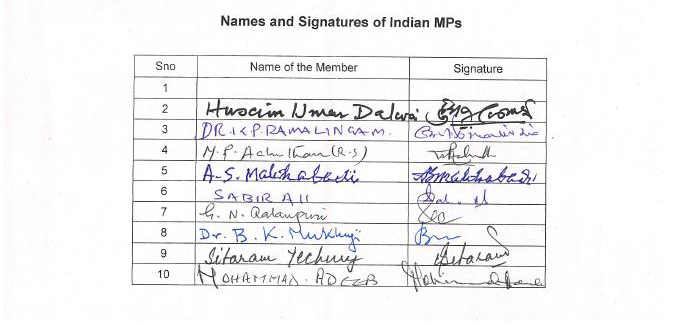 Names and Signatures of Indian MPs
Sno Name of the Member Signature
1
2 Husain Umar Dalwai
3 DR. K.P. RAMALINGAM.
4 M.P. (R.S)
5 A.S. Malihabadi
6 SABIR Ali
7 G. N. Ratanpuri
8 Dr. B. K. Mukhji
9 Sitaram Yechury Sitaram
10 MOHAMMAD. ADEEB